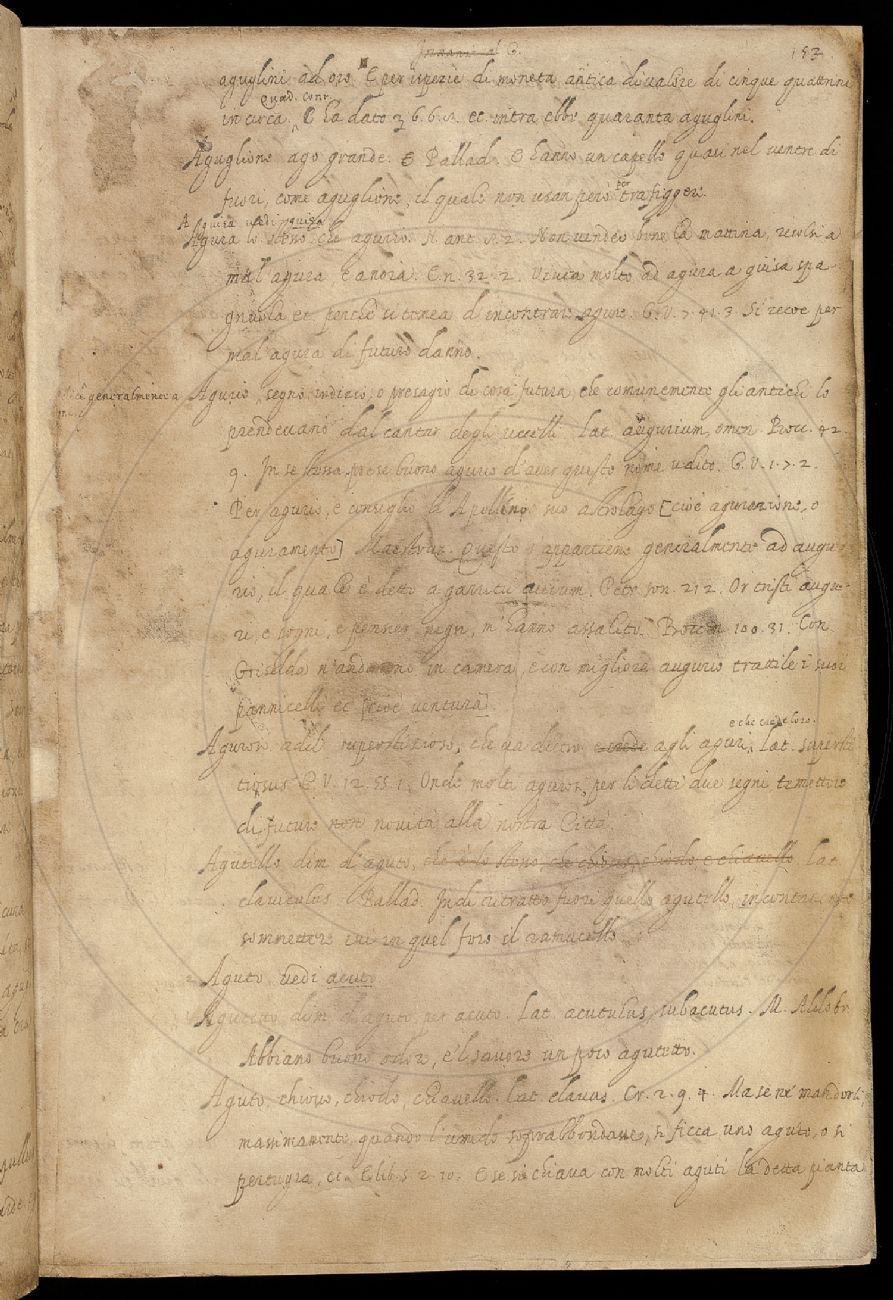 Innanzi al G.
153
aguglini ad oro. E per ispezie di moneta antica di valore di cinque quattrini
Quad. Cont.
in circa. E ha dato 3. 6. 6. ec. intra ebbe quaranta aguglini.
Aguglione ago grande. E Pallad. E hanno un capello quasi nel ventre di
fuori, come aguglione, il quale non usan però per trafiggere.
A guisa vedi guisa
Agura lo stesso che agurio. N. ant. 2. Non vendeo bene la mattina, recolsi a
mal' agura, e a noia. E n. 32. 2. Usava molto ad agura a guisa spa-
gnuola ec. perchè si tenea d'incontrare agure. G. V. 7. 41. 3. Si recoe per
mal' agura di futuro danno.
generalmente a
Agurio, segno, indizio, o presagio di cosa futura che comunemente gli antichi lo
prendevano dal cantar degli uccelli. Lat. augurium, omen. Bocc. 42.
9. In se stessa prese buono agurio d'aver questo nome udito. G. V. 1. 7. 2.
Per agurio, e consiglio d'Apollino suo astrolago [cioè agurazione, o
aguramento] Maestruz. Questo s'appartiene generalmente ad augu-
rio, il quale è detto a garritu avium. Petr. son. 212. Or tristi augu-
ri, e sogni, e pensier negri, m'hanno assalito. Bocc. n. 100. 31. Con
Griselda n'andarono in camera, e con migliore augurio trattile i suoi
pannicelli ec. [cioè ventura]
e che crede loro.
Aguroso adil. superstizioso, che va dietro agli aguri, Lat. supersti-
tiosus G. V. 12. 55. 1. Onde molti agurosi, per li detti due segni temettero
di futuro non novità alla nostra Città
Agutello dim. d'aguto, che è lo stesso, che chiovo, chiodo e chiavello. Lat.
claviculus. Pallad. Indi ritratto fuori quello agutello, incontanente
sommettere ivi in quel foro il ramucello
Aguto, vedi acuto
Agutetto dim. d'aguto, per acuto. Lat. acutulus, subacutus. M. Aldobr.
Abbiano buono odore, e'l savore un poco agutetto.
Aguto, chiovo, chiodo, chiavello. Lat. clavus. Cr. 2. 9. 4. Ma se ne' mandorli,
massimamente, quando l'umido soprabbondasse, si ficca uno aguto, o si
pertugia, ec. E lib. 5. 2. 10. E se si chiava con molti aguti la detta pianta